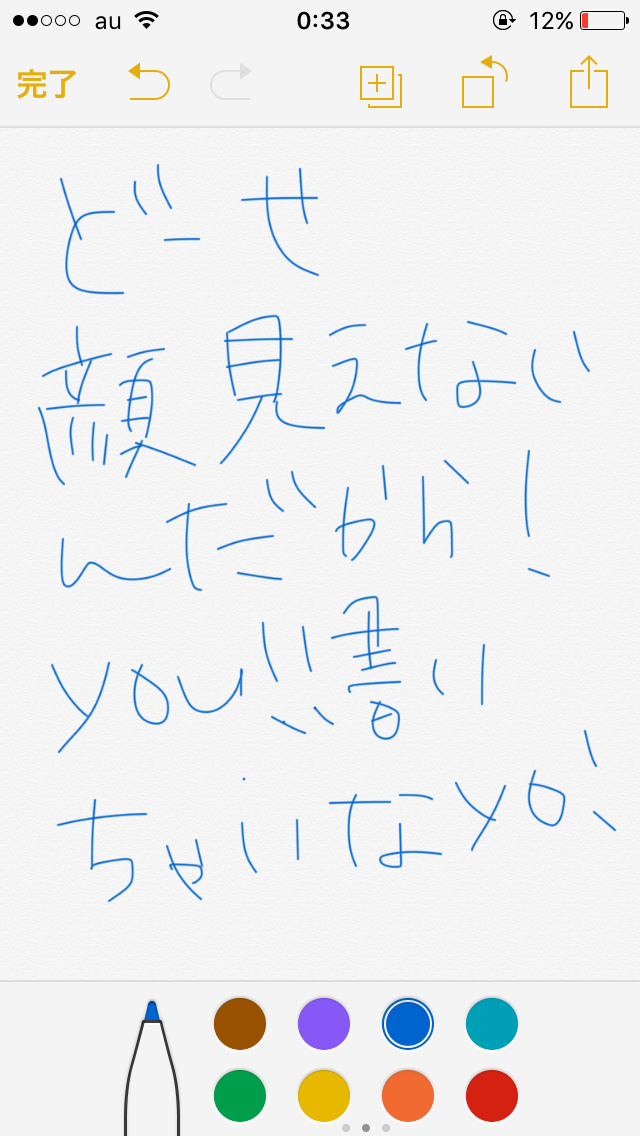 au 0:33 12%
完了
どーせ
顔見えない
んだから!
you!!書い
ちゃいなyo!